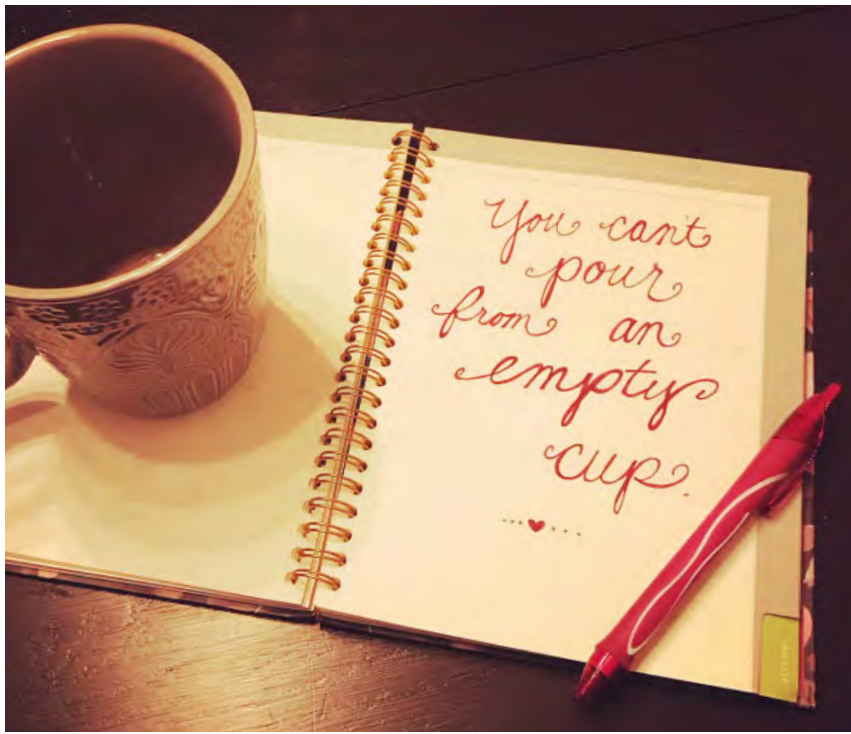 You can't
pour
from an
empty
cup.